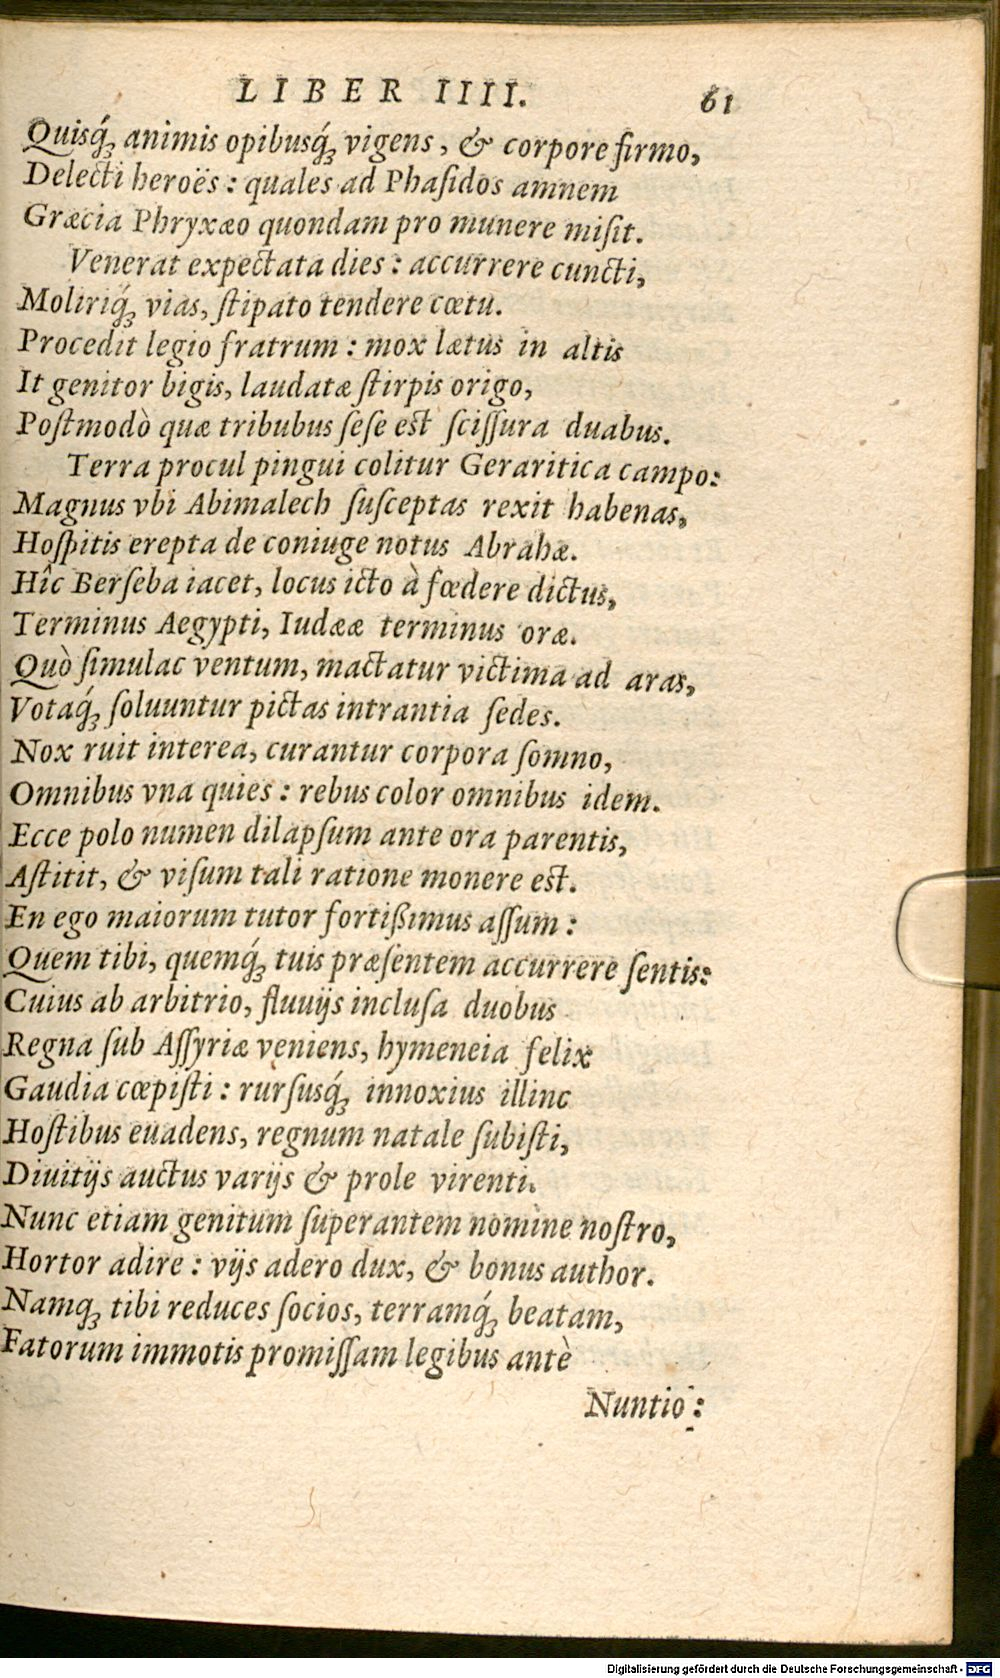 LIBER IIII. 61
Quisq́ꝫ animis opibusq́ꝫ vigens, & corpore firmo,
Delecti heroës: quales ad Phaſidos amnem
Græcia Phryxæo quondam pro munere miſit.
Venerat expectata dies: accurrere cuncti,
Moliriq́ꝫ vias, ſtipato tendere cœtu.
Procedit legio fratrum: mox lætus in altis
It genitor bigis, laudatæ ſtirpis origo,
Poſtmodò quæ tribubus ſeſe eſt ſciſſura duabus.
Terra procul pingui colitur Geraritica campo:
Magnus vbi Abimalech ſuſceptas rexit habenas,
Hoſpitis erepta de coniuge notus Abrahæ.
Hîc Berſeba iacet, locus icto à fœdere dictus,
Terminus Aegypti, Iudææ terminus oræ.
Quò ſimulac ventum, mactatur victima ad aras,
Votaq́ꝫ ſoluuntur pictas intrantia ſedes.
Nox ruit interea, curantur corpora ſomno,
Omnibus vna quies: rebus color omnibus idem.
Ecce polo numen dilapſum ante ora parentis,
Aſtitit, & viſum tali ratione monere eſt.
En ego maiorum tutor fortißimus aſſum:
Quem tibi, quemq́ꝫ tuis præſentem accurrere ſentis:
Cuius ab arbitrio, fluuijs incluſa duobus
Regna ſub Aſſyriæ veniens, hymeneia felix
Gaudia cœpiſti: rurſusq́ꝫ innoxius illinc
Hoſtibus euadens, regnum natale ſubiſti,
Diuitijs auctus varijs & prole virenti.
Nunc etiam genitum ſuperantem nomine noſtro,
Hortor adire: vijs adero dux, & bonus author.
Namqꝫ tibi reduces ſocios, terramq́ꝫ beatam,
Fatorum immotis promiſſam legibus antè
Nuntio:
Digitalisierung gefördert durch die Deutsche Forschungsgemeinschaft - DFG